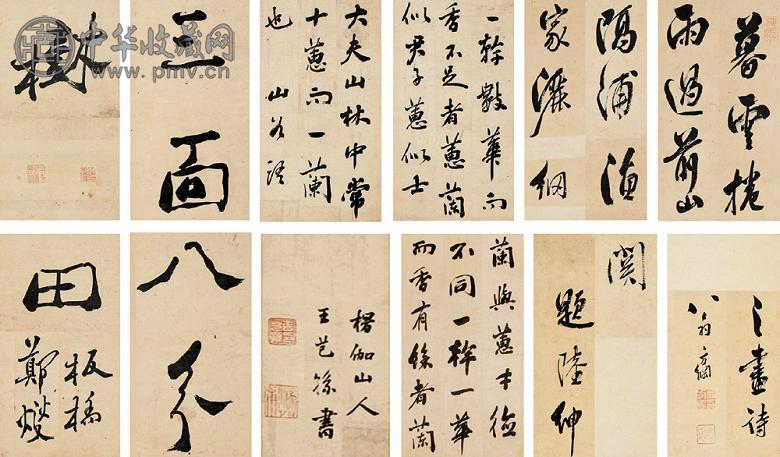 暮雲捲
雨過前山
隔浦漁
家灑網
一幹數華而
香不足者蕙蘭
似君子蕙似士
大夫山林中常
十蕙而一蘭
也 山谷語
三圖
樹
之畫詩
翁方綱
題陸紳
蘭與蕙才德
不同一幹一華
而香有餘者蘭
楞伽山人
王芑孫書
八分
田
板橋
鄭燮
中华收藏网
www.pmv.cn